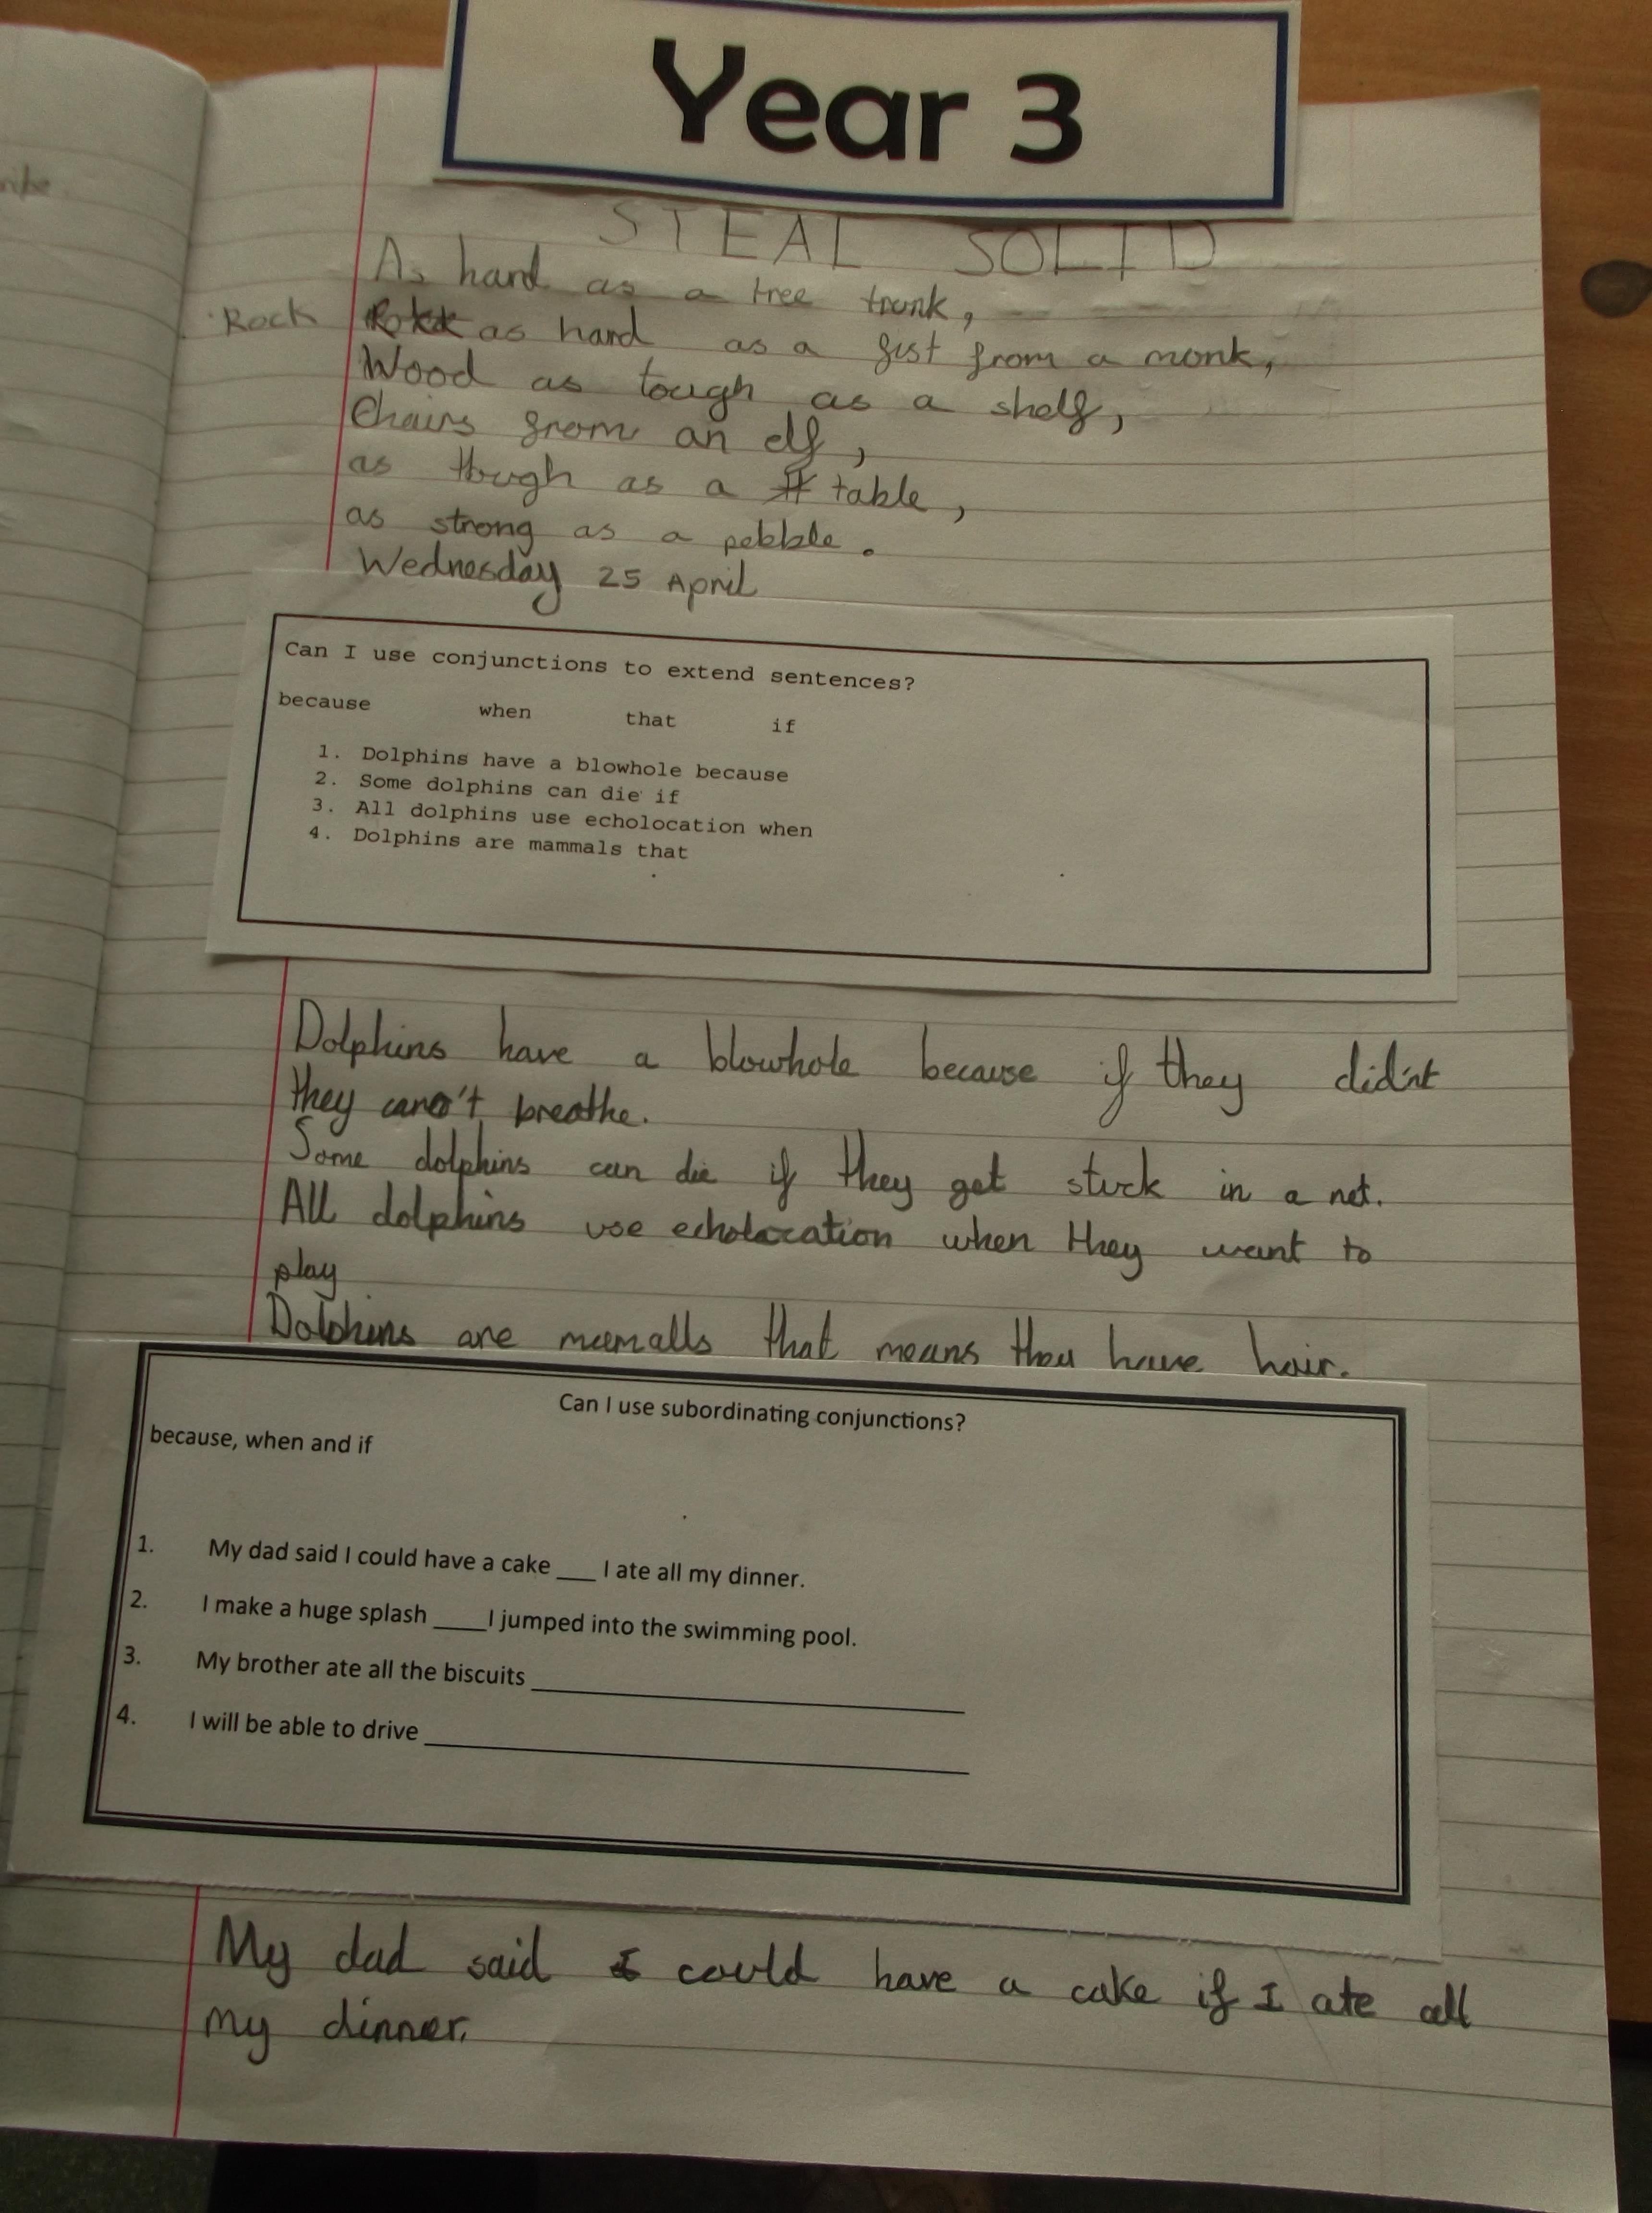 Year 3
ribe
STEAL SOLID
As hard as a tree trunk,
Rock as hard as a fist from a monk,
Wood as tough as a shelf,
Chairs from an elf,
as though as a table,
as strong as a pebble.
Wednesday 25 April
Can I use conjunctions to extend sentences?
because when that if
1. Dolphins have a blowhole because
2. Some dolphins can die if
3. All dolphins use echolocation when
4. Dolphins are mammals that
Dolphins have a blowhole because if they did'nt
they can't breathe.
Some dolphins can die if they get stuck in a net.
All dolphins use echolocation when they want to
play
Dolphins are mamalls that means they have hair.
Can I use subordinating conjunctions?
because, when and if
1. My dad said I could have a cake ___ I ate all my dinner.
2. I make a huge splash ____I jumped into the swimming pool.
3. My brother ate all the biscuits ___
4. I will be able to drive ___
My dad said I could have a cake if I ate all
my dinner.